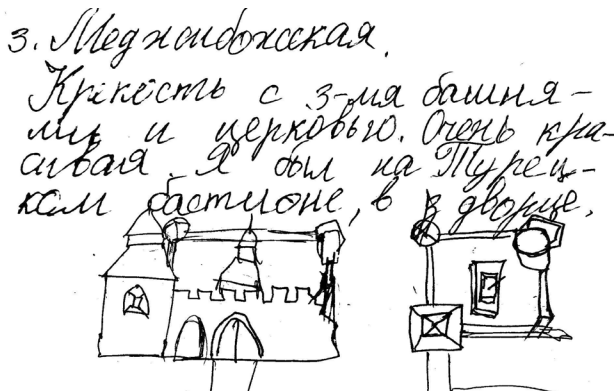 3. Меджибожская.
Крепость с 3-мя башня-
ми и церковью. Очень кра-
сивая. Я был на Турец-
ком бастионе, в дворце,